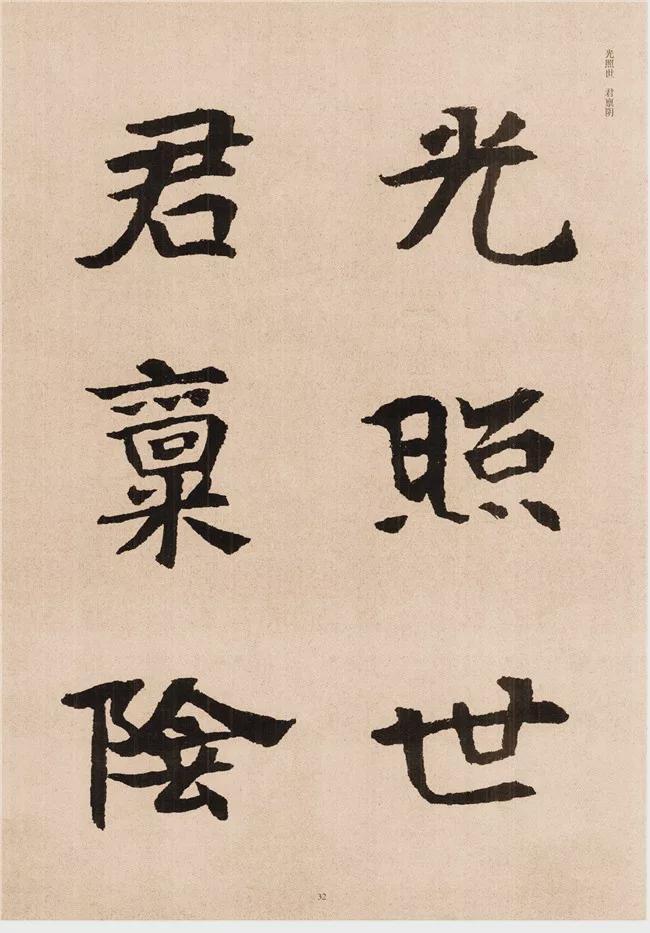 光照世　君禀阴
光照世
君稟陰
32